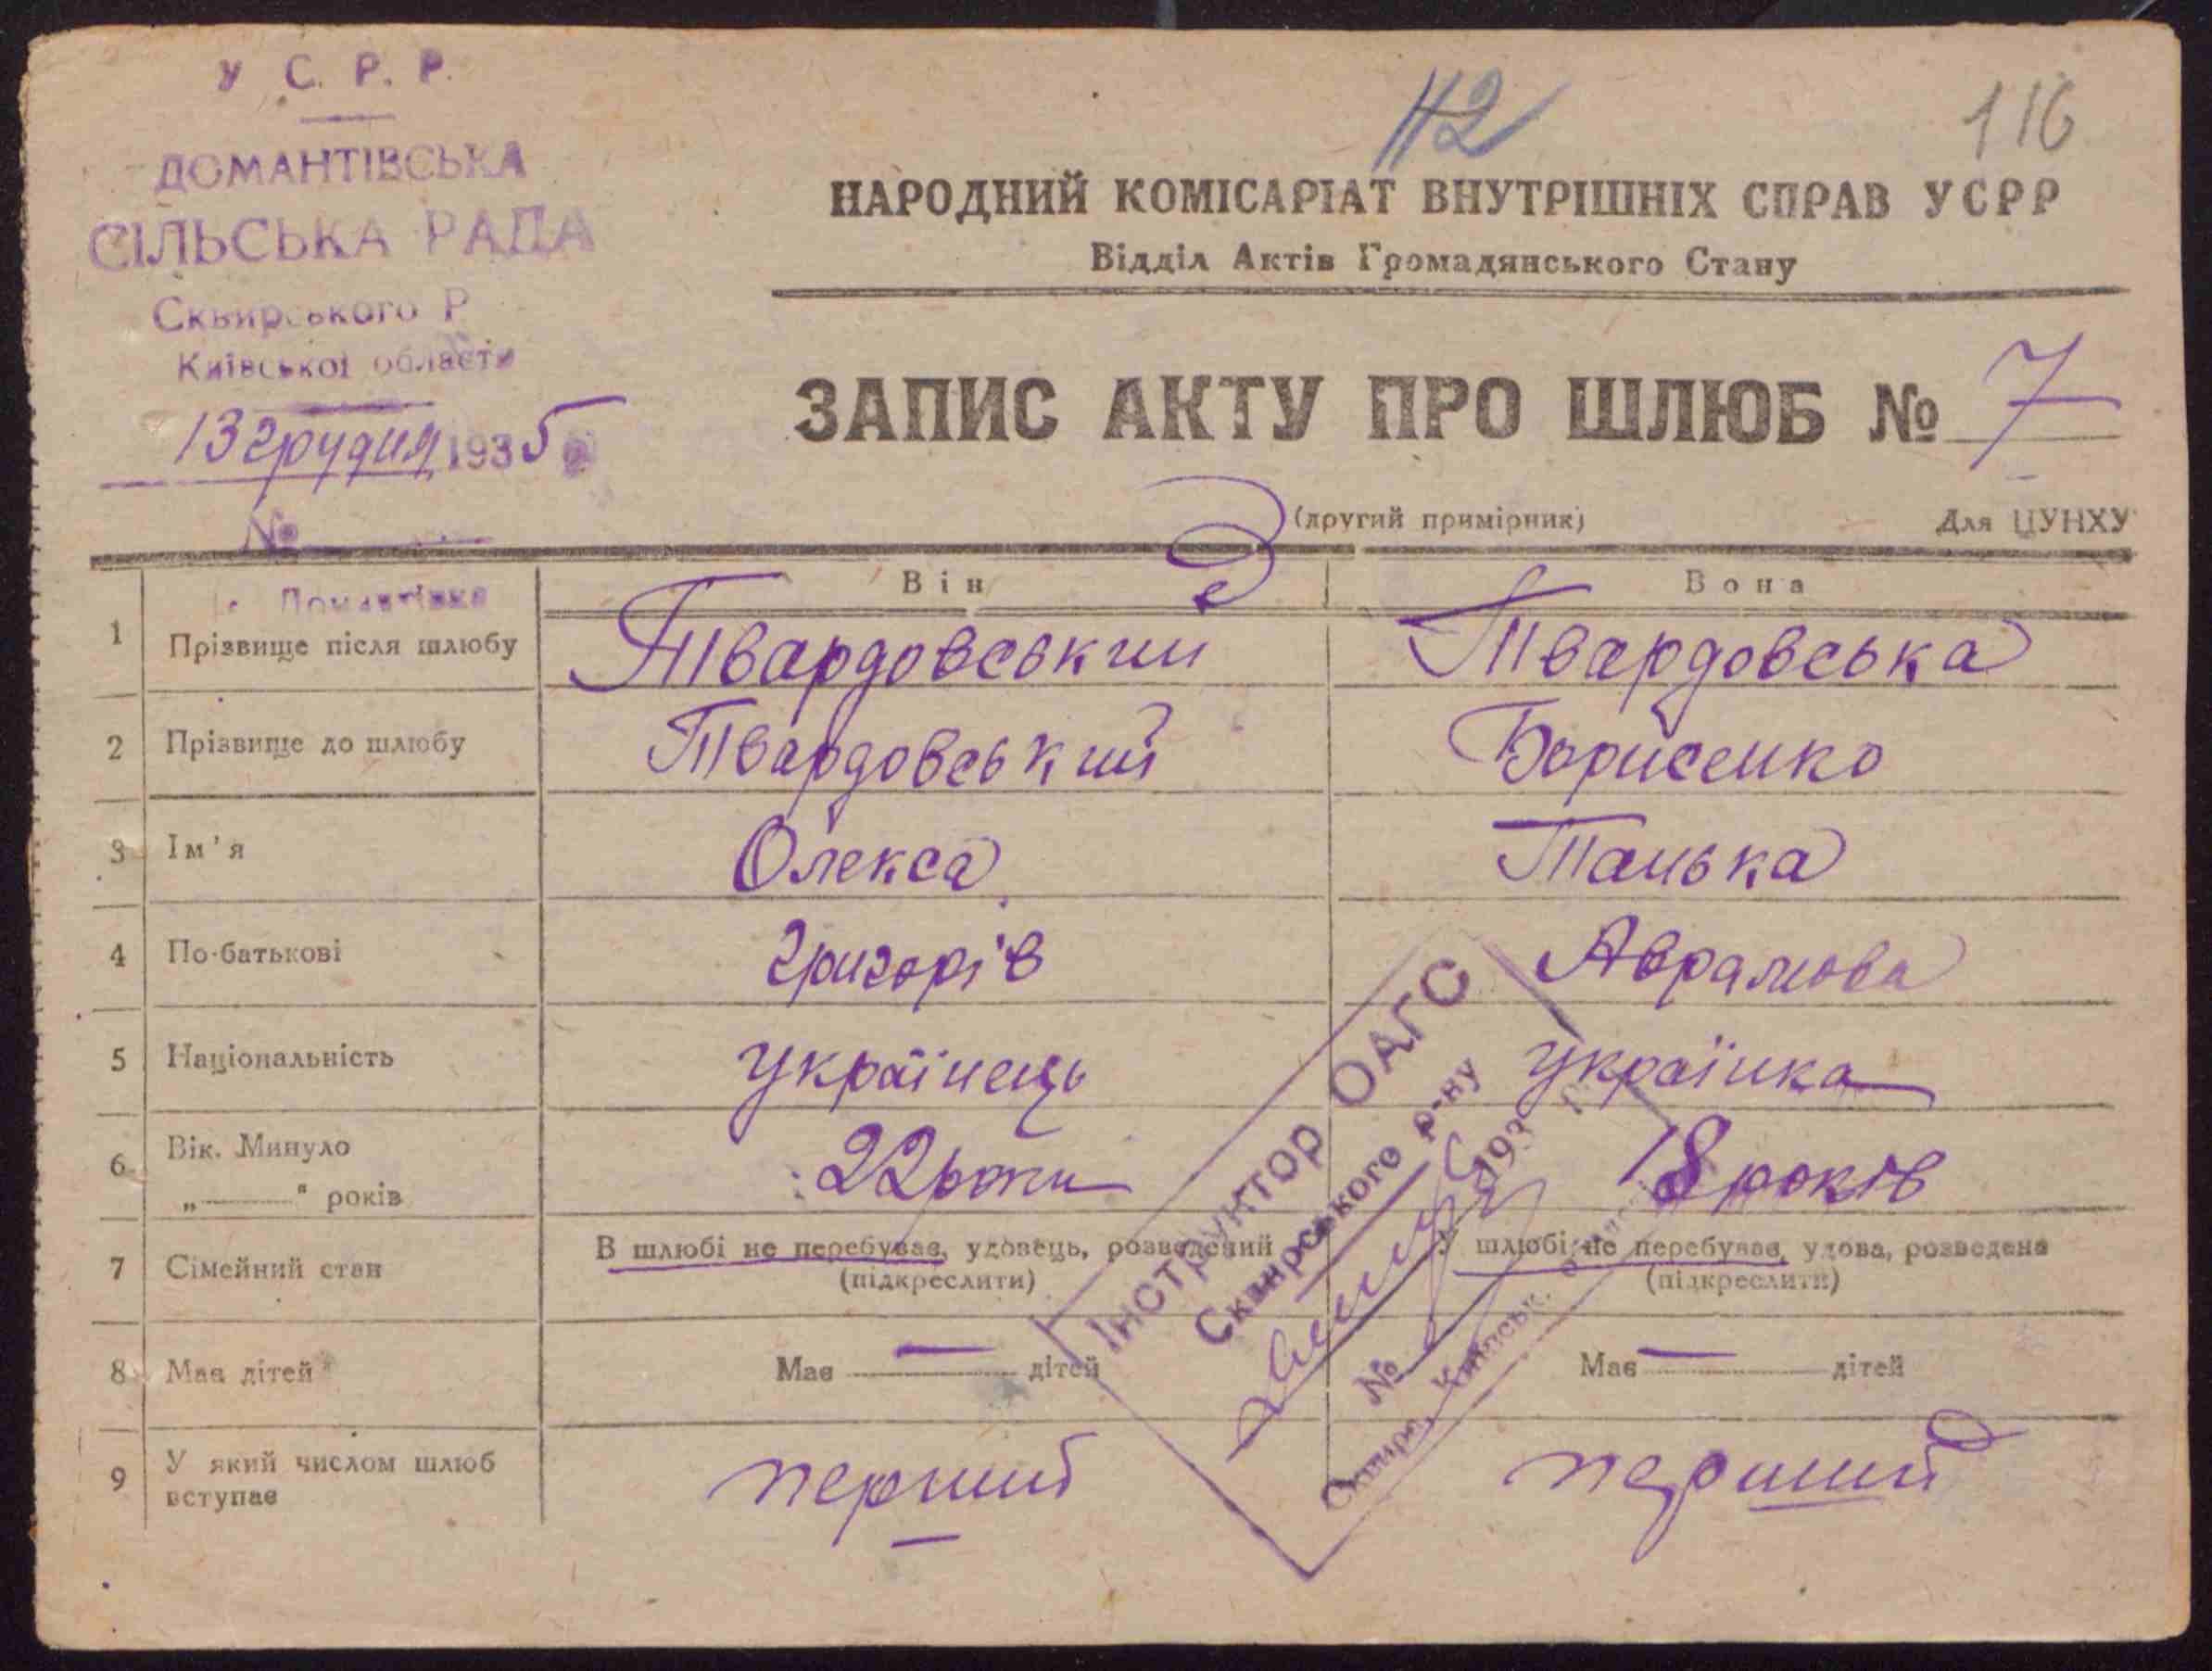 У С. Р. Р.
ДОМАНТІВСЬКА
СІЛЬСЬКА РАДА
Сквирського Р
Київської області
13 грудня 1935
№
112
116
НАРОДНИЙ КОМІСАРІАТ ВНУТРІШНІХ СПРАВ УСРР
Відділ Актів Громадянського Стану
ЗАПИС АКТУ ПРО ШЛЮБ № 7
(другий примірник) Для ЦУНХУ
с. Домантівка
Він Вона
1 Прізвище після шлюбу Твардовський Твардовська
2 Прізвище до шлюбу Твардовський Борисенко
3 Ім'я Олекса Танька
4 По-батькові Григорів Аврамова
5 Національність Українець Українка
6 Вік. Минуло
„ — “ років 22 роки 18 років
7 Сімейний стан В шлюбі не перебуває, удовець, розведений У шлюбі не перебуває, удова, розведена
(підкреслити) (підкреслити)
8 Має дітей Має — дітей Має — дітей
9 У який числом шлюб
вступає перший перший
Інструктор ОАГС
Сквирського р-ну
193 р.
№
Сквира, Київськ.